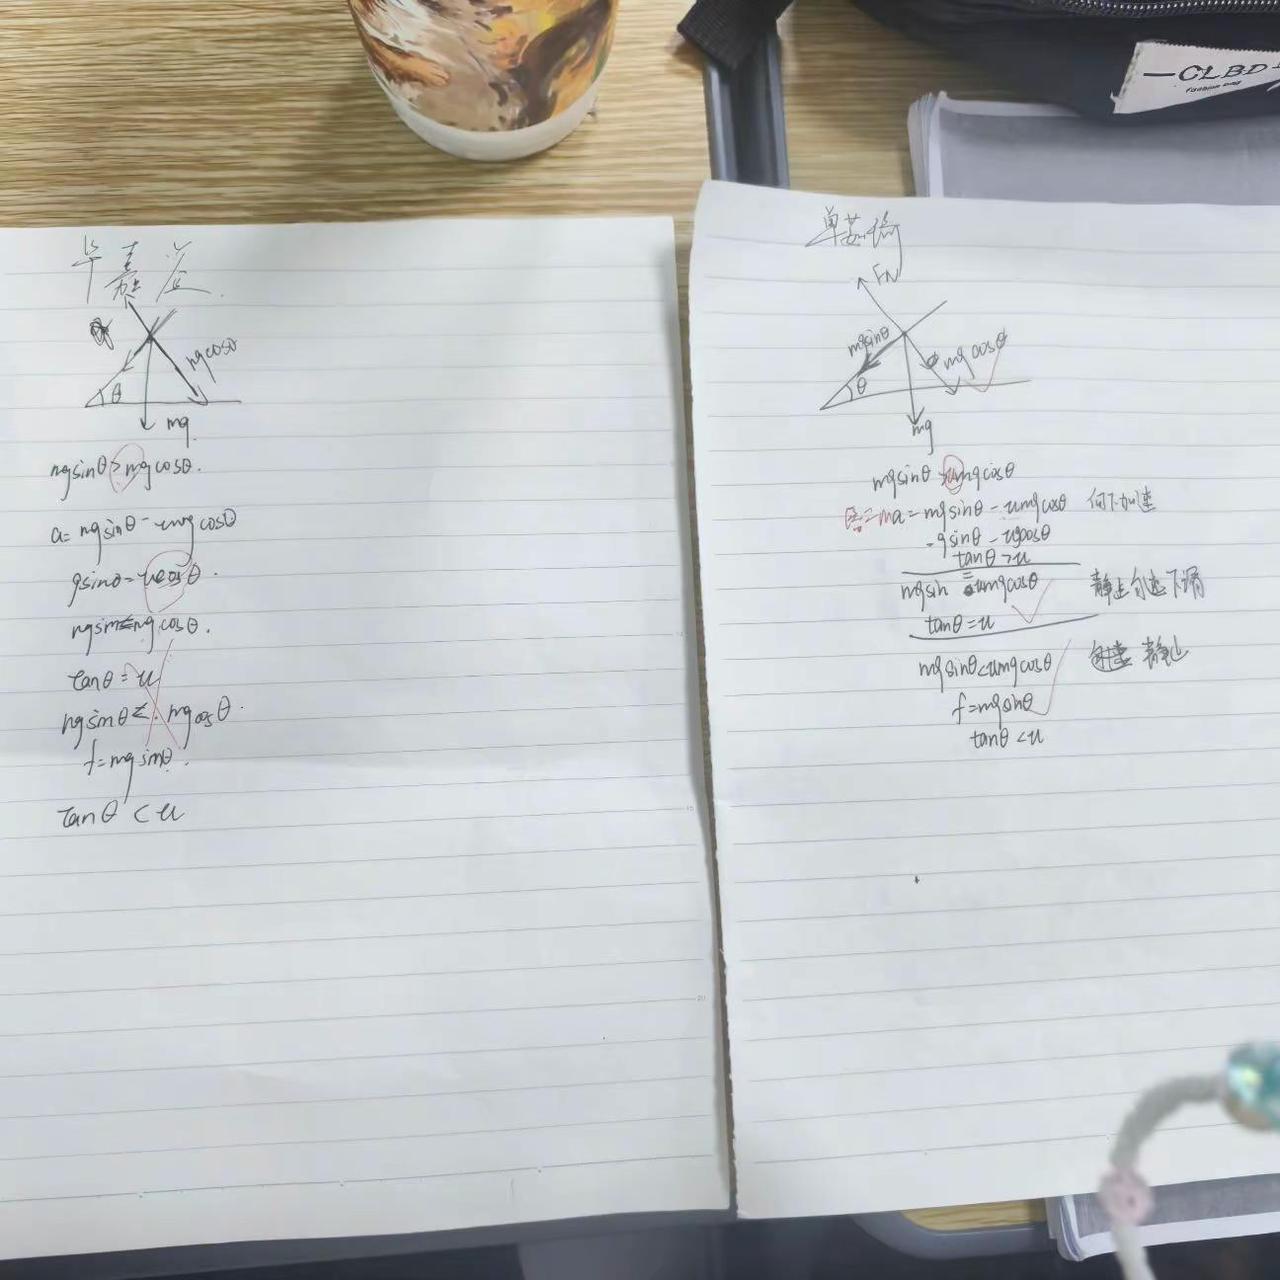 CLBD
fashion bag
毕嘉
mgcosθ
θ
mg.
mgsinθ>mgcosθ.
a=mgsinθ-umgcosθ
gsinθ=ucosθ.
mgsinθ≤mgcosθ.
tanθ=u
mgsinθ≤.mgcosθ.
f=mgsinθ.
tanθ<u
单
FN
mgsinθ
mgcosθ
θ
mg
mgsinθ>umgcosθ
=ma=mgsinθ-umgcosθ 向下加速
=gsinθ-ugcosθ
tanθ>u
mgsin=umgcosθ 静止匀速下滑
tanθ=u
mgsinθ<umgcosθ 静止
f=mgsinθ
tanθ<u